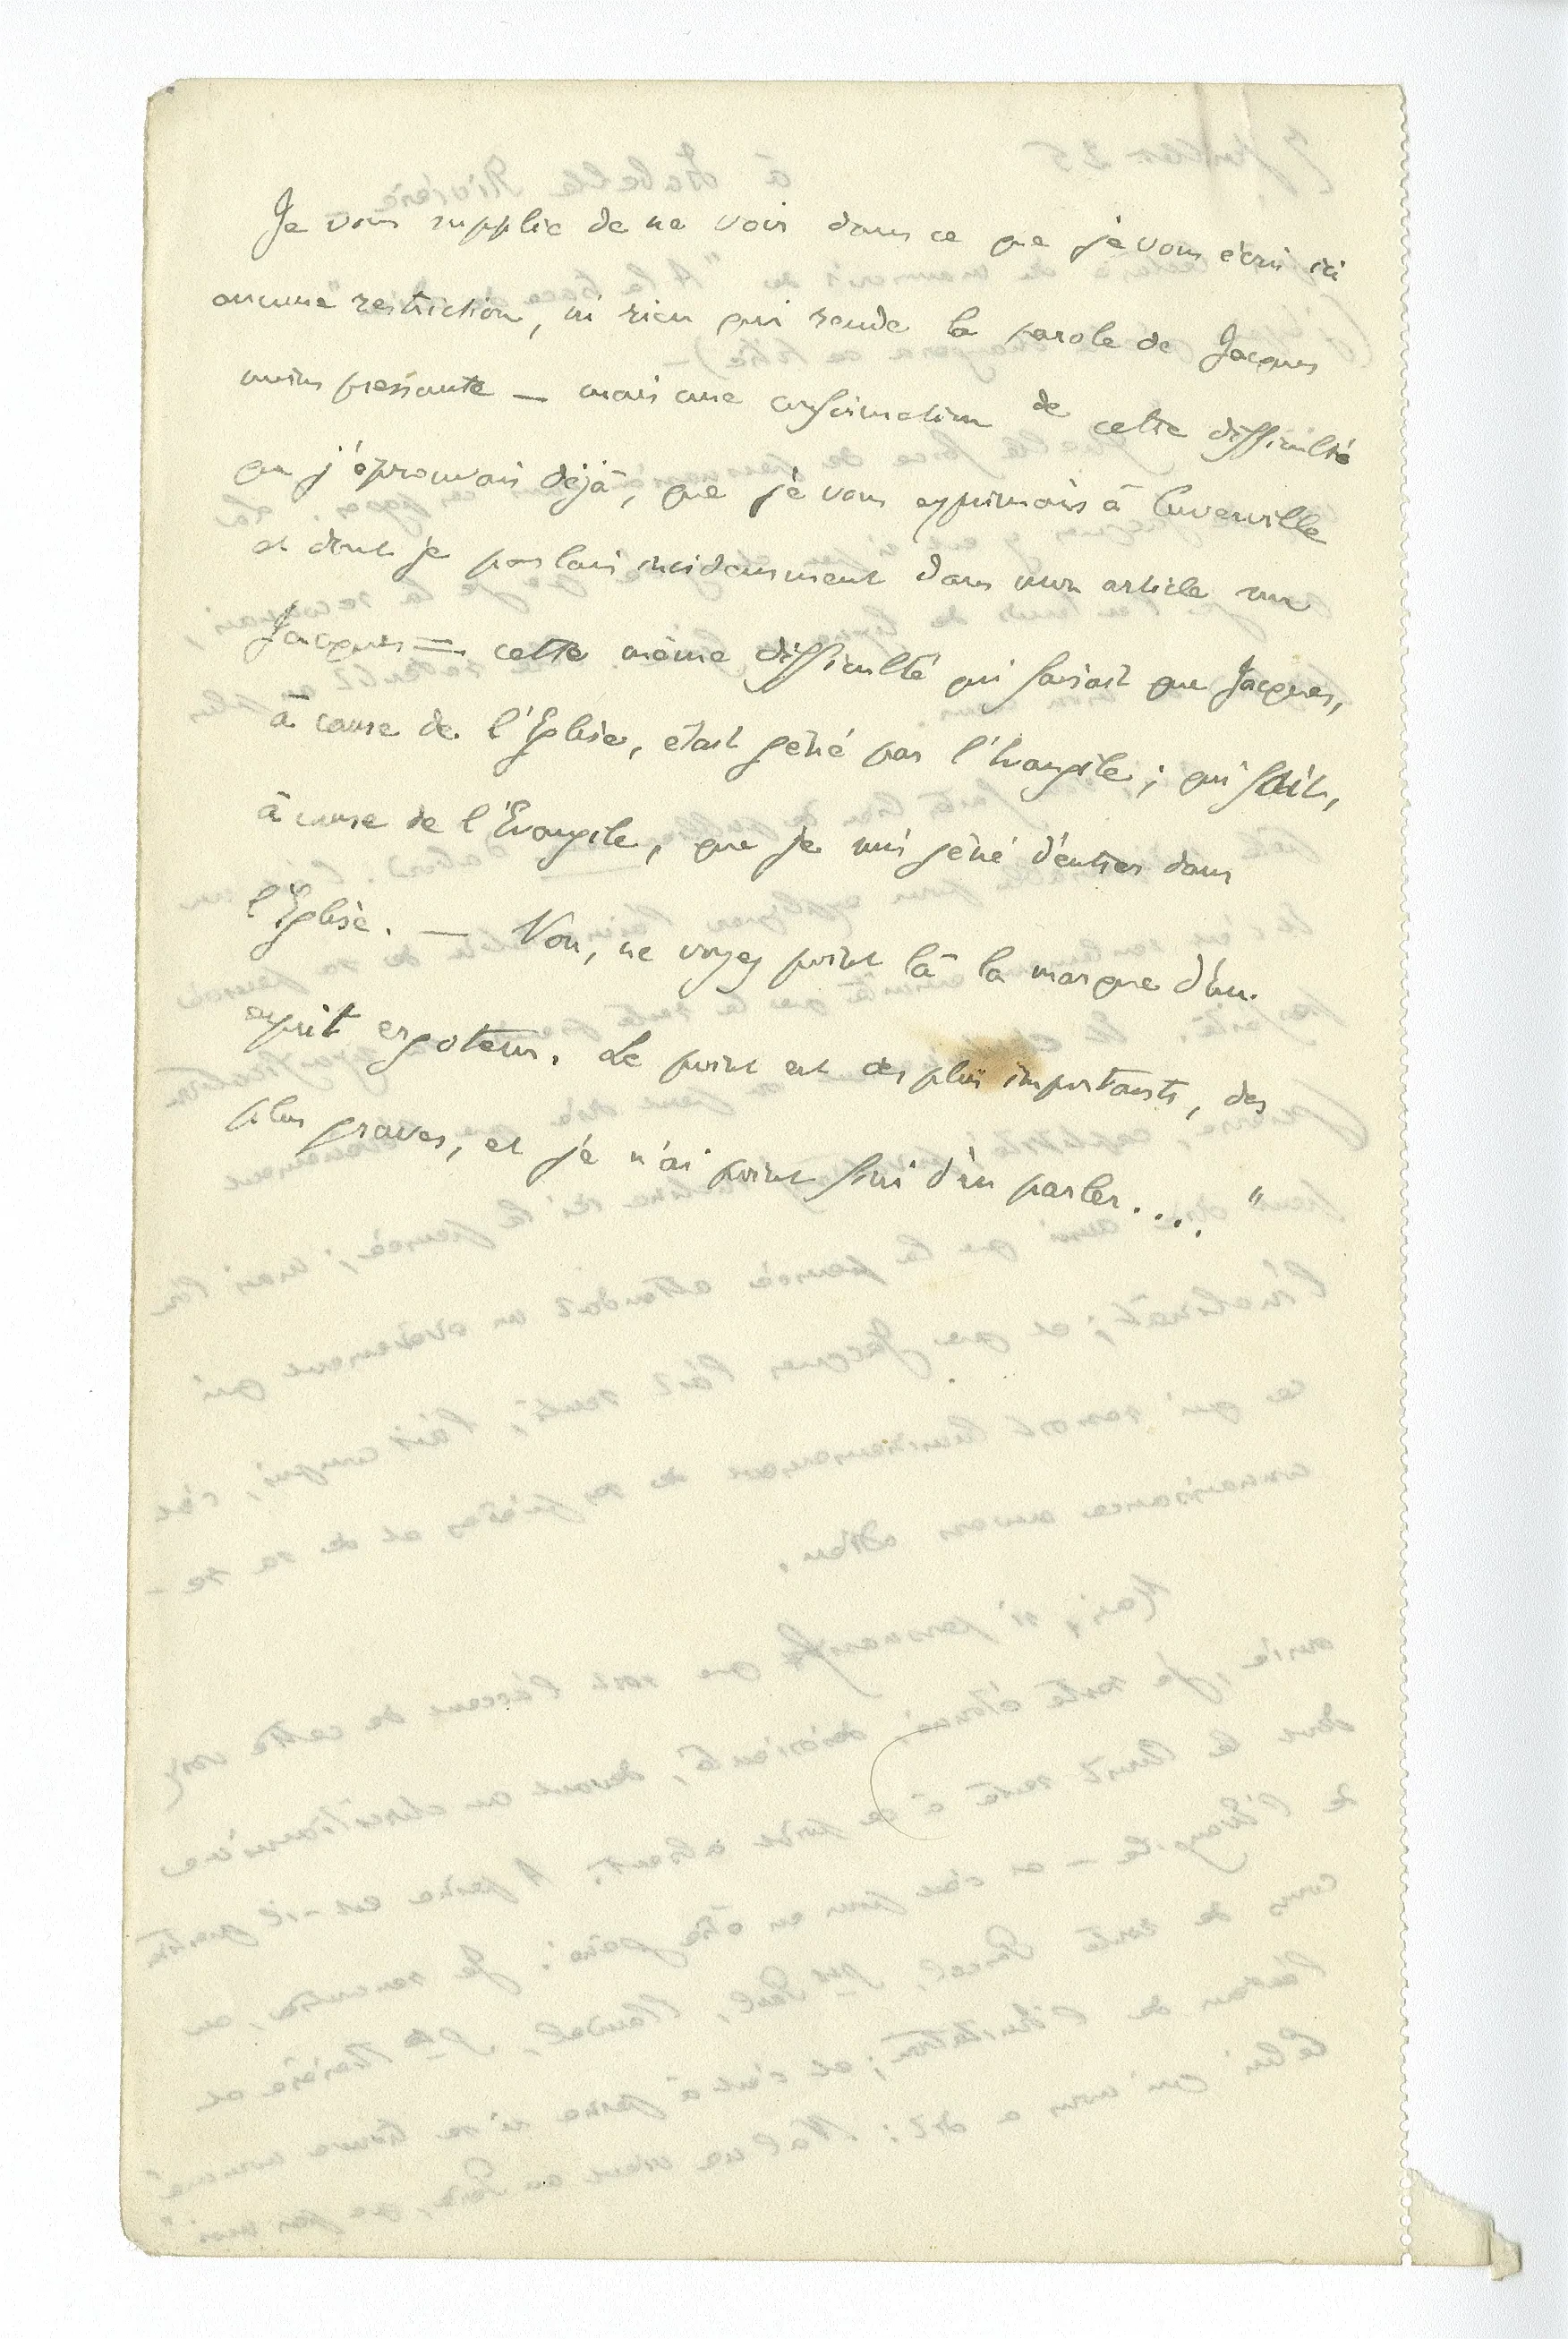 Je vous supplie de ne voir dans ce que je vous écris ici
aucune restriction, ni rien qui rende la parole de Jacques
moins pressante — mais une confirmation de cette difficulté
que j'éprouvais déjà, que je vous exprimais à Cuverville
et dont je parlais incidemment dans mon article sur
Jacques = cette même difficulté qui faisait que Jacques,
à cause de l'Eglise, était gêné par l'Evangile ; qui fait,
à cause de l'Evangile, que je suis gêné d'entrer dans
l'Eglise. — Non, ne voyez point là la marque d'un
esprit ergoteur. Le point est des plus importants, des
plus graves, et je n'ai point fini d'en parler.... "